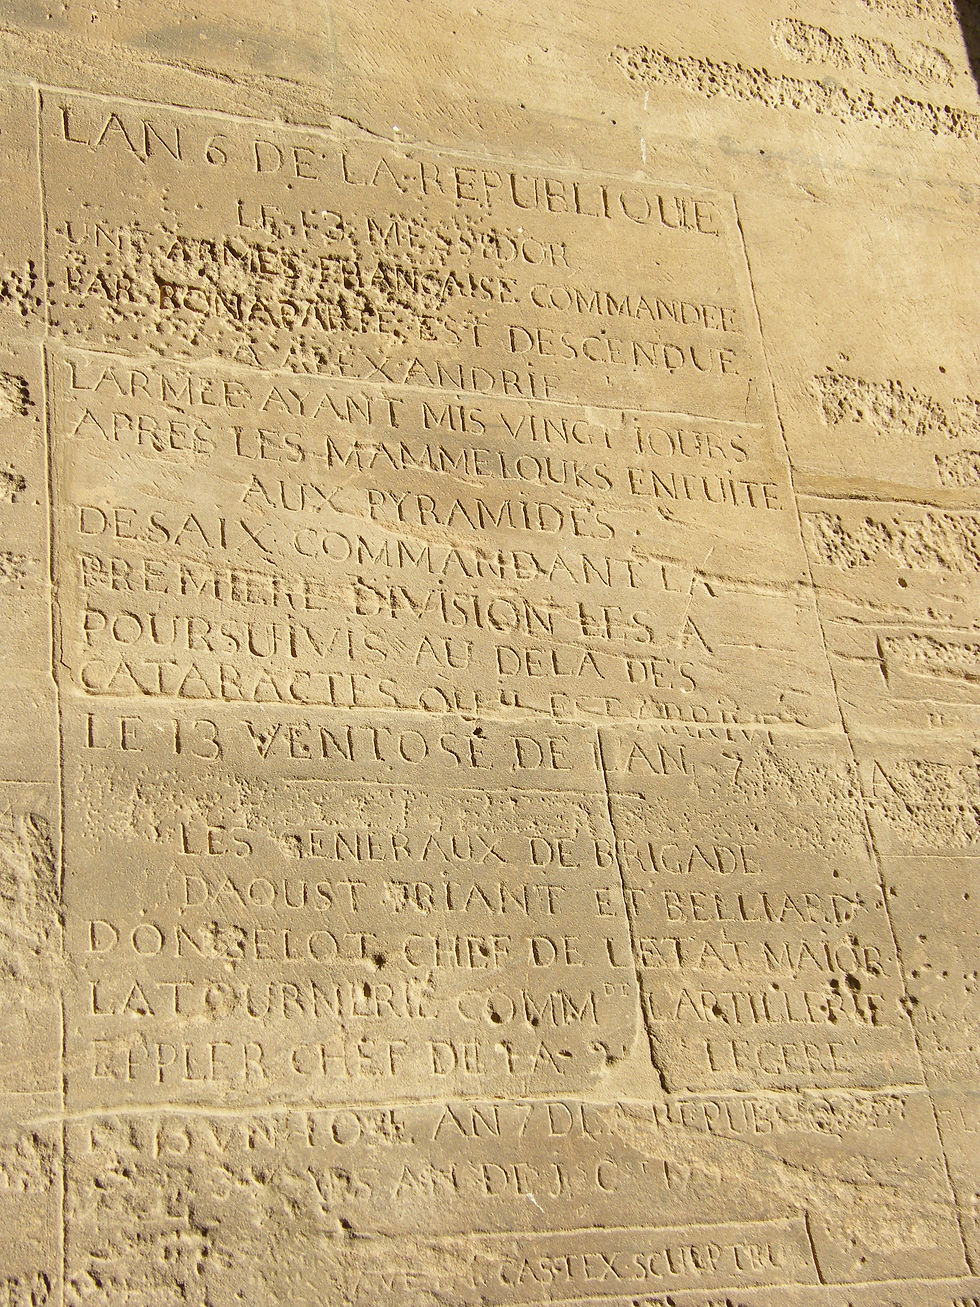 LAN 6 DE LA REPUBLIQUE
LE 13 MESSIDOR
UNE ARMEE FRANÇAISE COMMANDEE
PAR BONAPARTE EST DESCENDUE
A ALEXANDRIE
L'ARMEE AYANT MIS VINGT JOURS
APRES LES MAMMELOUKS EN FUITE
AUX PYRAMIDES
DESAIX COMMANDANT LA
PREMIERE DIVISION LES A
POURSUIVIS AU DELA DES
CATARACTES OU IL EST ARRIVE
LE 13 VENTOSE DE L'AN 7
LES GENERAUX DE BRIGADE
DAOUST FRIANT ET BELLIARD
DONZELOT CHEF DE L'ETAT MAJOR
LATOURNERIE COMM.DT L'ARTILLERIE
EPPLER CHEF DE LA 21 LEGERE
LE 13 VENTOSE AN 7 DE LA REPUBLIQUE
MARS AN DE J.C.
CASTEX SCULPTEUR